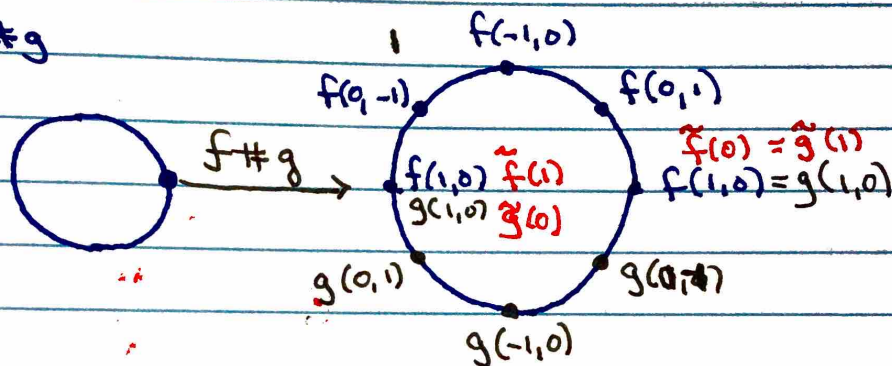 # g
f(-1,0)
f(0,-1)
f(0,1)
f # g
f̃(0) = g̃(1)
f(1,0) f̃(1)
f(1,0) = g(1,0)
g(1,0) g̃(0)
g(0,1)
g(-1,0)